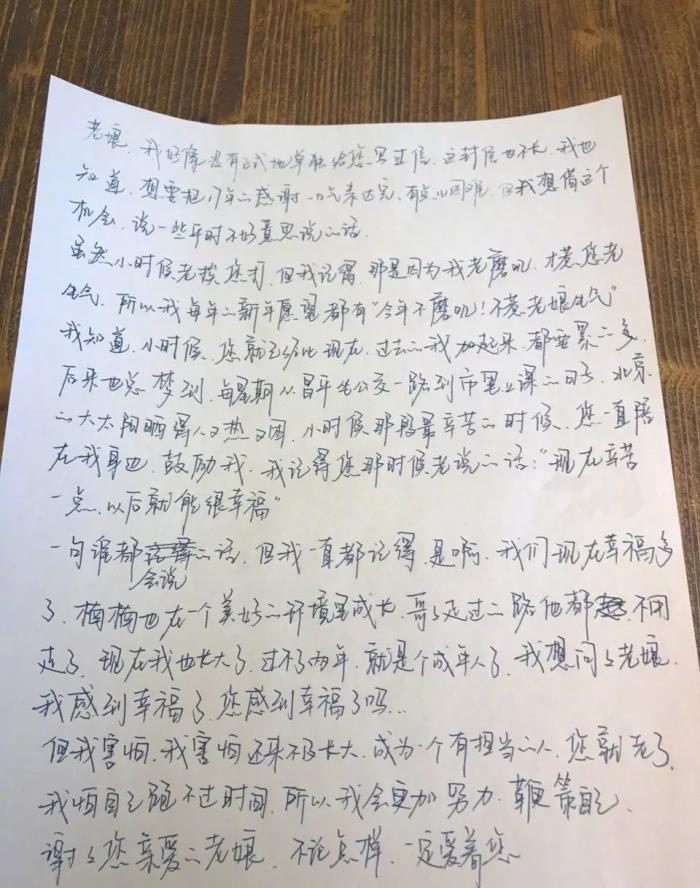 老娘，我好像没有正式地单独给您写过信，这封信也不长，我也
知道，想要把17年的感谢一口气表达完，有点儿困难，但我想借这个
机会，说一些平时不好意思说的话。
虽然小时候老挨您打，但我记得，那是因为我老磨叽，才惹您老
生气，所以我每年的新年愿望都有“今年不磨叽！不惹老娘生气”
我知道，小时候，您就已经比现在，过去的我加起来，都要累的多，
后来也总梦到，每星期从昌平坐公交一路到市里上课的日子，北京
的大太阳晒得人又热又困，小时候那段最辛苦的时候，您一直陪
在我身边，鼓励我，我记得您那时候老说的话：“现在辛苦
一点，以后就能很幸福”
一句谁都会说的话，但我一直都记得，是啊，我们现在幸福多
了，楠楠也在一个美好的环境里成长，哥哥走过的路他都不用
走了，现在我也长大了，过不了两年，就是个成年人了，我想问问老娘，
我感到幸福了，您感到幸福了吗…
但我害怕，我害怕还来不及长大，成为一个有担当的人，您就老了，
我怕自己跑不过时间，所以我会更加努力，鞭策自己，
谢谢您亲爱的老娘，不论怎样，一定爱着您